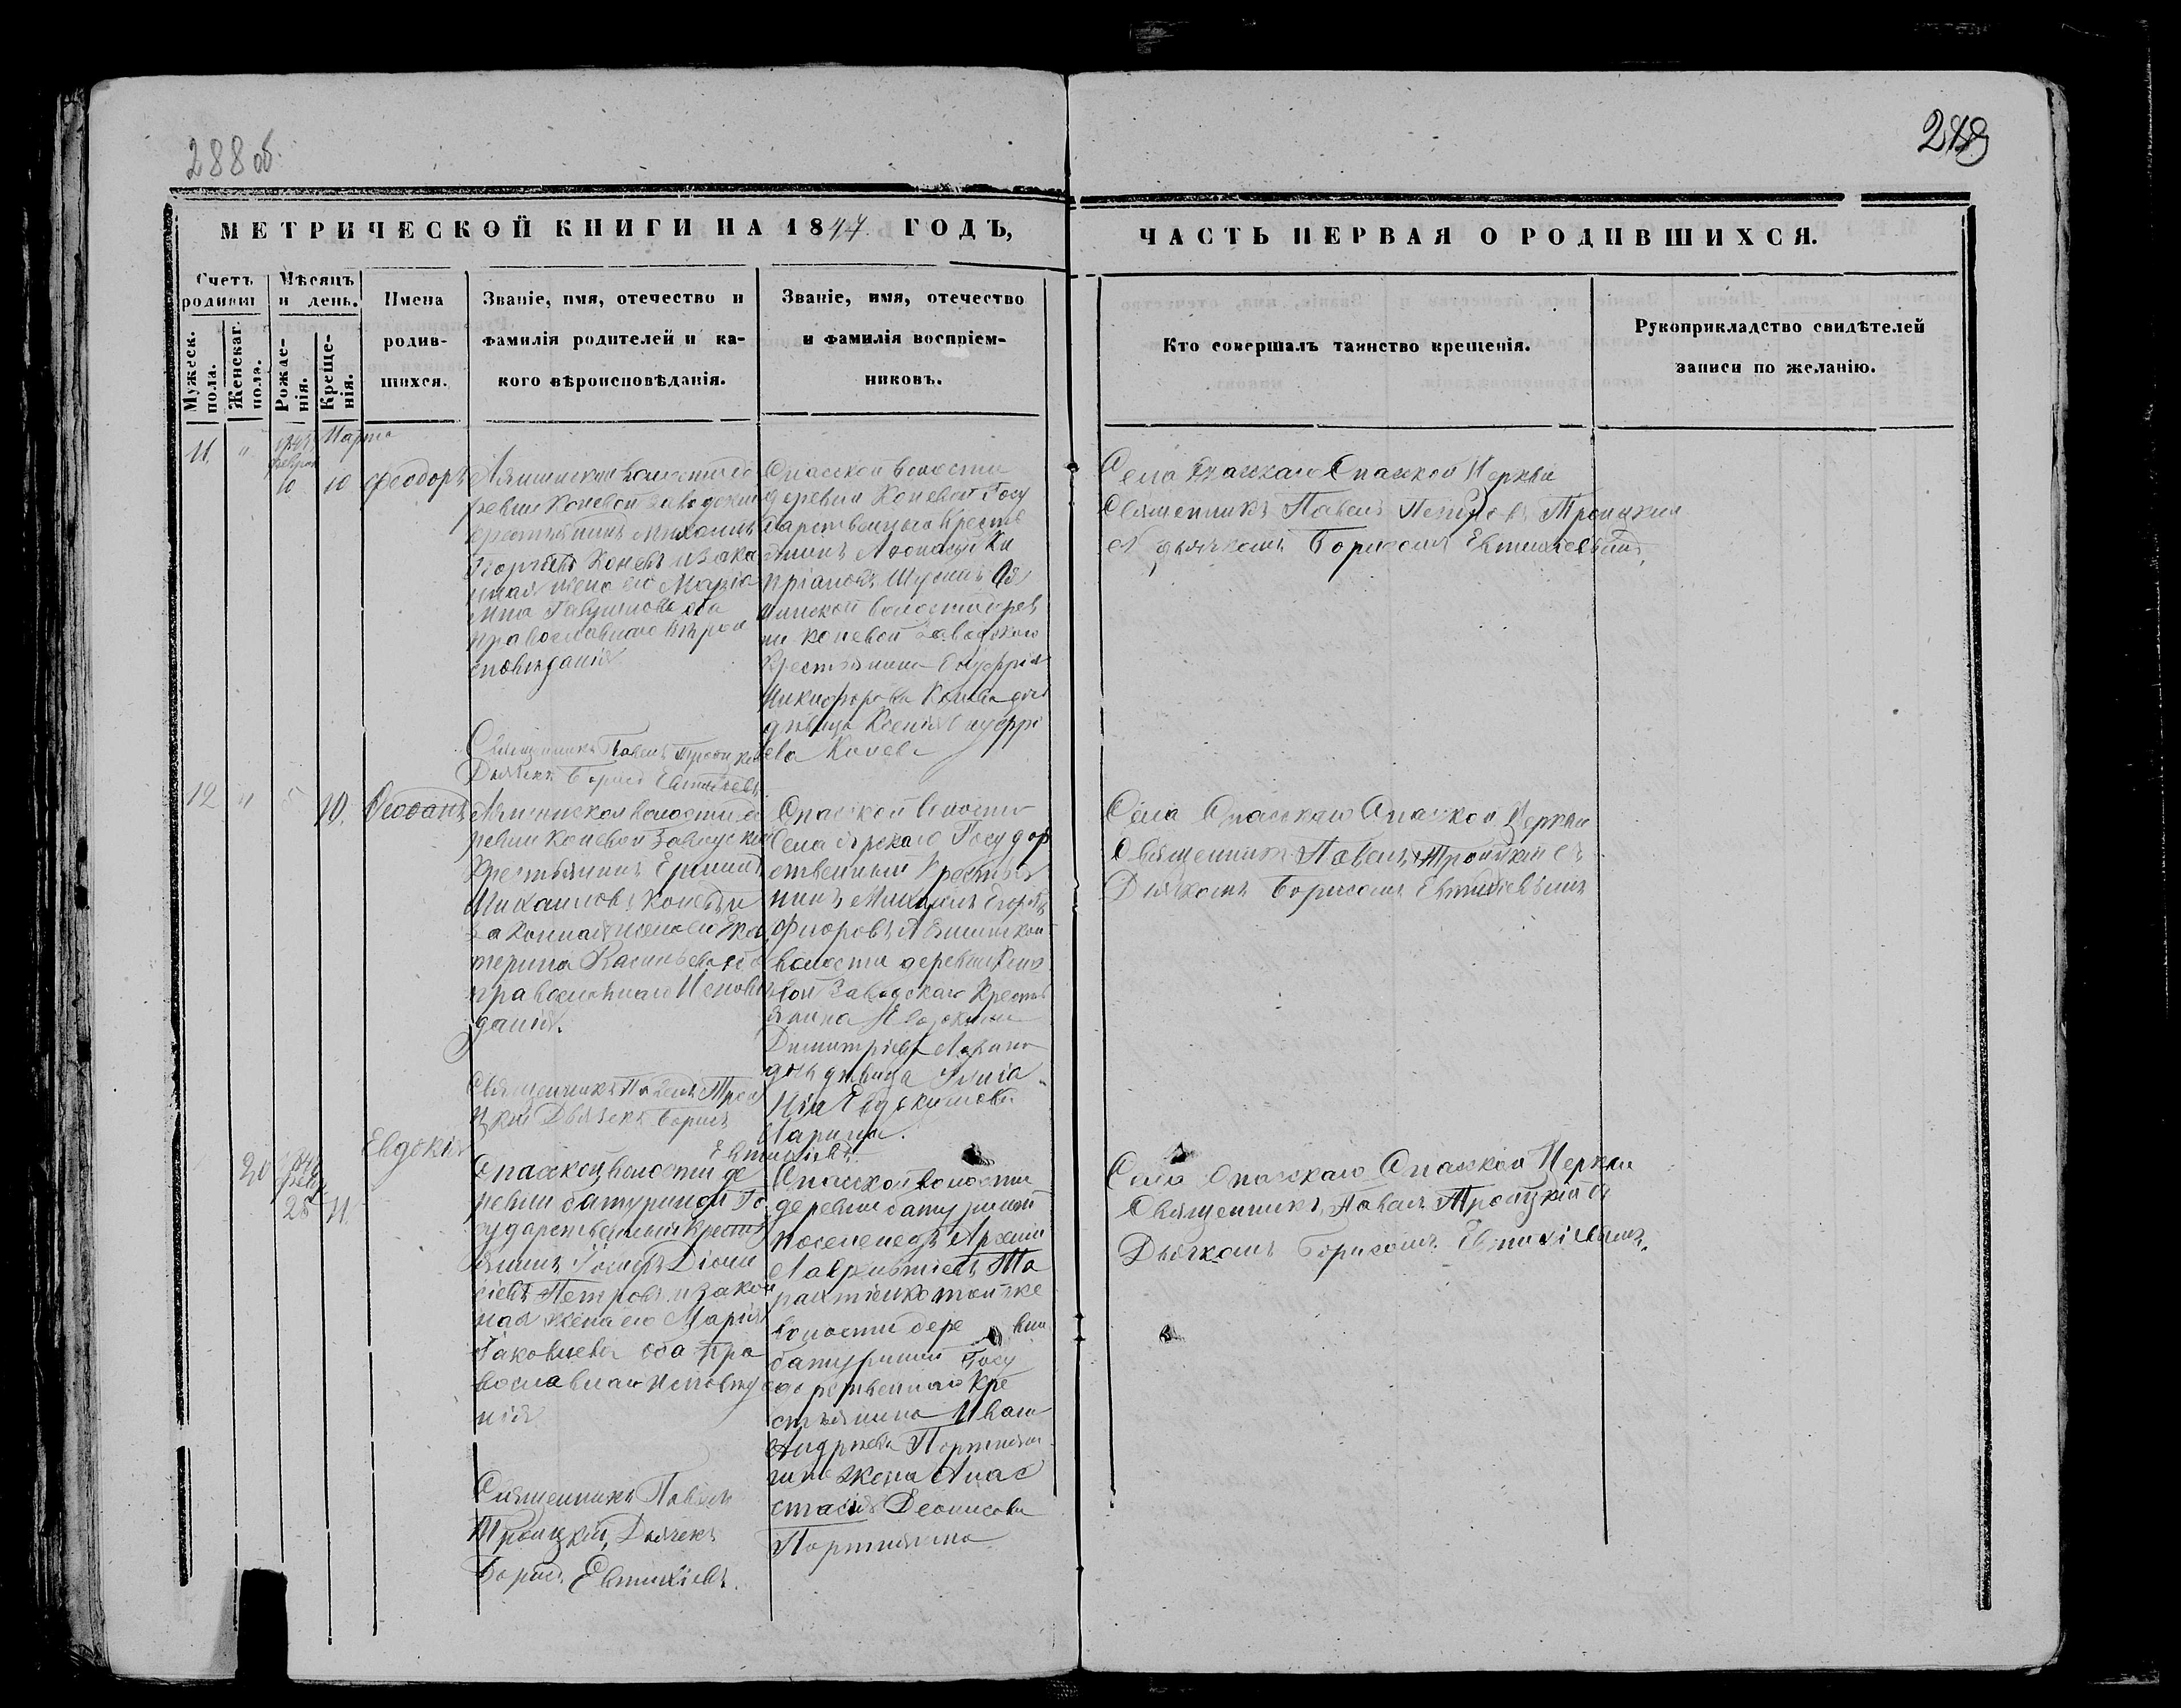 288 об.
289
МЕТРИЧЕСКОЙ КНИГИ НА 1847 ГОДЪ,
ЧАСТЬ ПЕРВАЯ О РОДИВШИХСЯ.
Счетъ родившихся
Мужеск. пола.
Женскаго пола.
Мѣсяцъ и день.
Рожденія.
Крещенія.
Имена
родив-
шихся.
Званіе, имя, отечество и
фамилія родителей и ка-
кого вѣроисповѣданія.
Званіе, имя, отечество
и фамилія воспріем-
никовъ.
Кто совершалъ таинство крещенія.
Рукоприкладство свидѣтелей
записи по желанію.
11 "
Феврал
10
Марта
10
Феодоръ
волости де
ревни Коневой Заводскій
крестьянинъ Михаилъ
Георгіевъ Коневъ и зако
нная жена его Марѳа
оба
православнаго вѣрои
сповѣданія
Священникъ Павелъ Троицкій
Дьячекъ Борисъ Евтихіевъ
Спасской волости
деревни Коневой Госу
дарственный Кресть
янинъ Аѳонасій Ки
пріановъ
волости дерев
ни Коневой Заводскаго
Крестьянина Онуфрія
Никифорова Конева дочь
дѣвица Ксенія Онуфрі
ева Конева
Села Спасскаго Спасской Церкви
Священникъ Павелъ Петровъ Троицкій
съ дьячкомъ Борисомъ Евтихіевымъ
12 " 5
10.
волости де
ревни Коневой Заводскій
Крестьянинъ
Михаиловъ Коневъ и
законная жена его Ека
терина Васильева оба
православнаго Исповѣ
данія.
Священникъ Павелъ Трои
цкій Дьячекъ Борисъ
Евтихіевъ
Спасской волости
Села Государ
ственный Крестья
нинъ Михаилъ Егоровъ
волости деревни Коне
вой Заводскаго Кресть
янина Евдокима
Димитріева Ларина
дочь дѣвица
Евдокимова
Ларина.
Села Спасскаго Спасской Церкви
Священникъ Павелъ Троицкій съ
Дьячкомъ Борисомъ Евтихіевымъ
20
25
11.
Евдокія
Спасской волости де
ревни Батуриной Го
сударственный Кресть
янинъ Іосифъ Діони
сіевъ Петровъ и закон
ная жена его Марія
Іаковлева оба пра
вославнаго Исповѣда
нія
Священникъ Павелъ
Троицкій, Дьячекъ
Борисъ Евтихіевъ.
Спасской волости
деревни Батуриной
поселенецъ Архипъ
Лаврентіевъ
той же
волости дере вни
Батуриной Госу
дарственнаго Кре
стьянина Ивана
Андреева Портняги
на жена Анас
тасія Деонисова
Портнягина
Села Спасскаго Спасской Церкви
Священникъ Павелъ Троицкій съ
Дьячкомъ Борисомъ Евтихіевымъ.